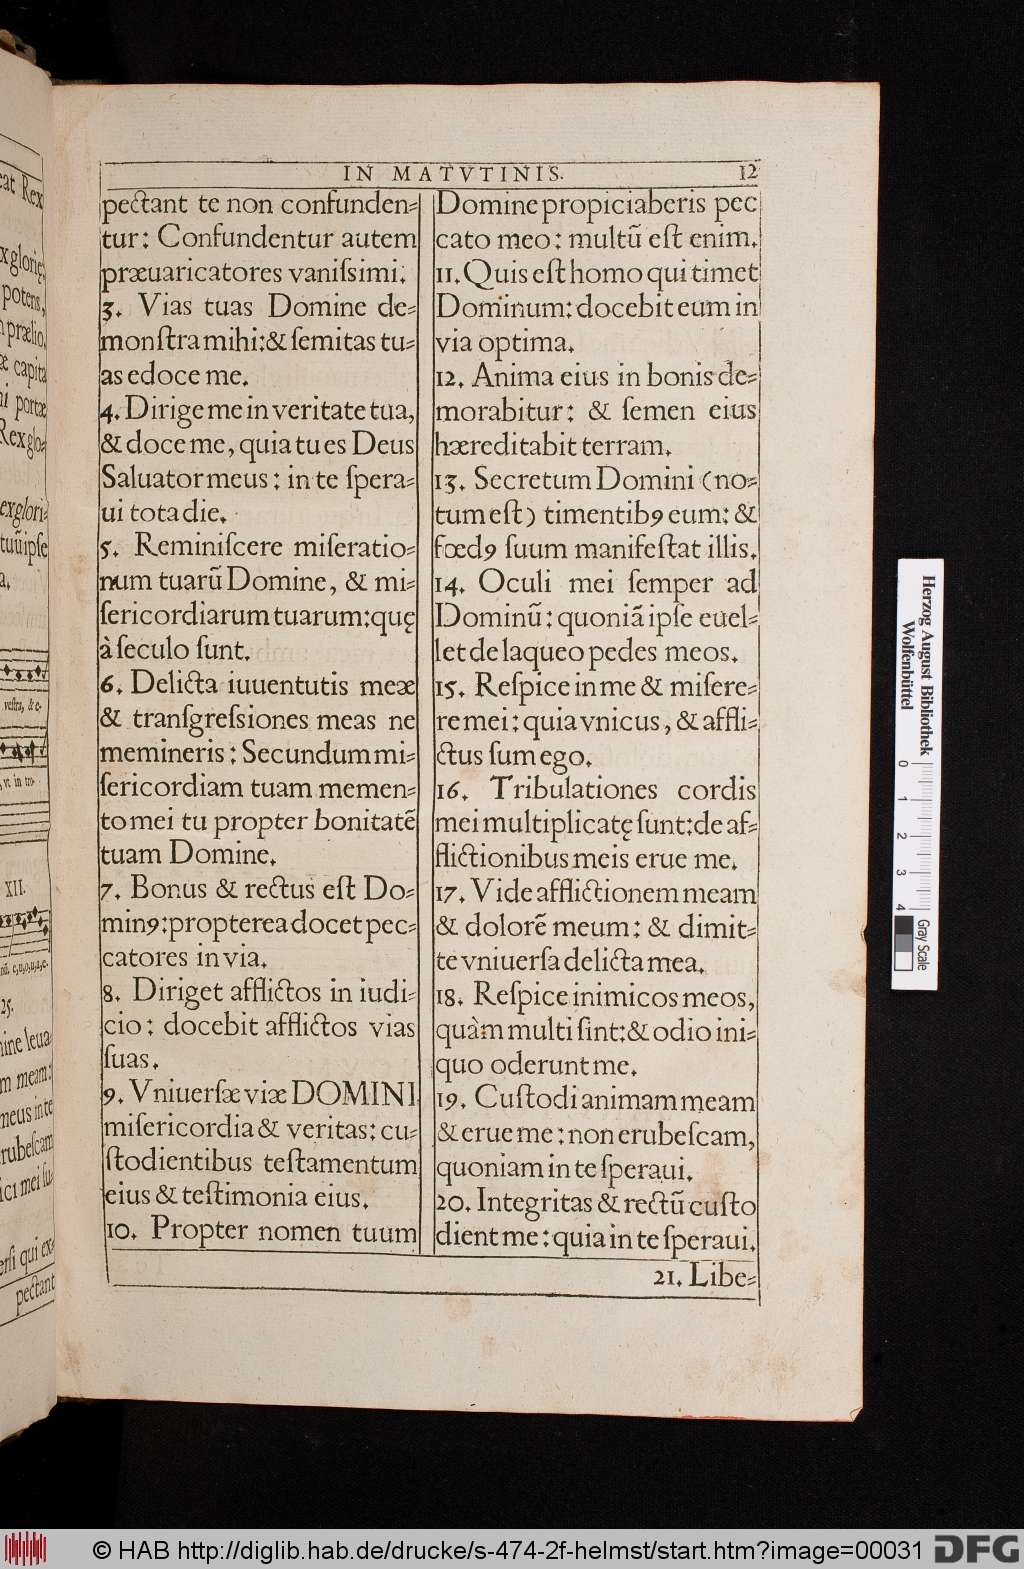 IN MATVTINIS.
12
pectant te non confunden=
tur: Confundentur autem
præuaricatores vaniſsimi.
3. Vias tuas Domine de=
monſtra mihi:& ſemitas tu=
as edoce me.
4. Dirige me in veritate tua,
& doce me, quia tu es Deus
Saluator meus: in te ſpera=
ui tota die.
5. Reminiſcere miſeratio=
num tuarũ Domine, & mi=
ſericordiarum tuarum:quę
à ſeculo ſunt.
6. Delicta iuuentutis meæ
& tranſgreſsiones meas ne
memineris: Secundum mi=
ſericordiam tuam memen=
to mei tu propter bonitatẽ
tuam Domine.
7. Bonus & rectus eſt Do=
minꝰ:propterea docet pec=
catores in via.
8. Diriget afflictos in iudi=
cio: docebit afflictos vias
ſuas.
9. Vniuerſæ viæ DOMINI
miſericordia & veritas: cu=
ſtodientibus teſtamentum
eius & teſtimonia eius.
10. Propter nomen tuum
Domine propiciaberis pec
cato meo: multũ eſt enim.
11. Quis eſt homo qui timet
Dominum: docebit eum in
via optima.
12. Anima eius in bonis de=
morabitur: & ſemen eius
hæreditabit terram.
13. Secretum Domini (no=
tum eſt) timentibꝰ eum: &
fœdꝰ ſuum manifeſtat illis.
14. Oculi mei ſemper ad
Dominũ: quoniã ipſe euel=
let de laqueo pedes meos.
15. Reſpice in me & miſere=
re mei: quia vnicus, & affli=
ctus ſum ego.
16. Tribulationes cordis
mei multiplicatę ſunt: de af=
flictionibus meis erue me.
17. Vide afflictionem meam
& dolorẽ meum: & dimit=
te vniuerſa delicta mea.
18. Reſpice inimicos meos,
quàm multi ſint:& odio ini=
quo oderunt me.
19. Cuſtodi animam meam
& erue me: non erubeſcam,
quoniam in te ſperaui.
20. Integritas & rectũ cuſto
dient me: quia in te ſperaui.
21. Libe=
Herzog August Bibliothek
Wolfenbüttel
0 1 2 3 4
Gray Scale
© HAB http://diglib.hab.de/drucke/s-474-2f-helmst/start.htm?image=00031
DFG